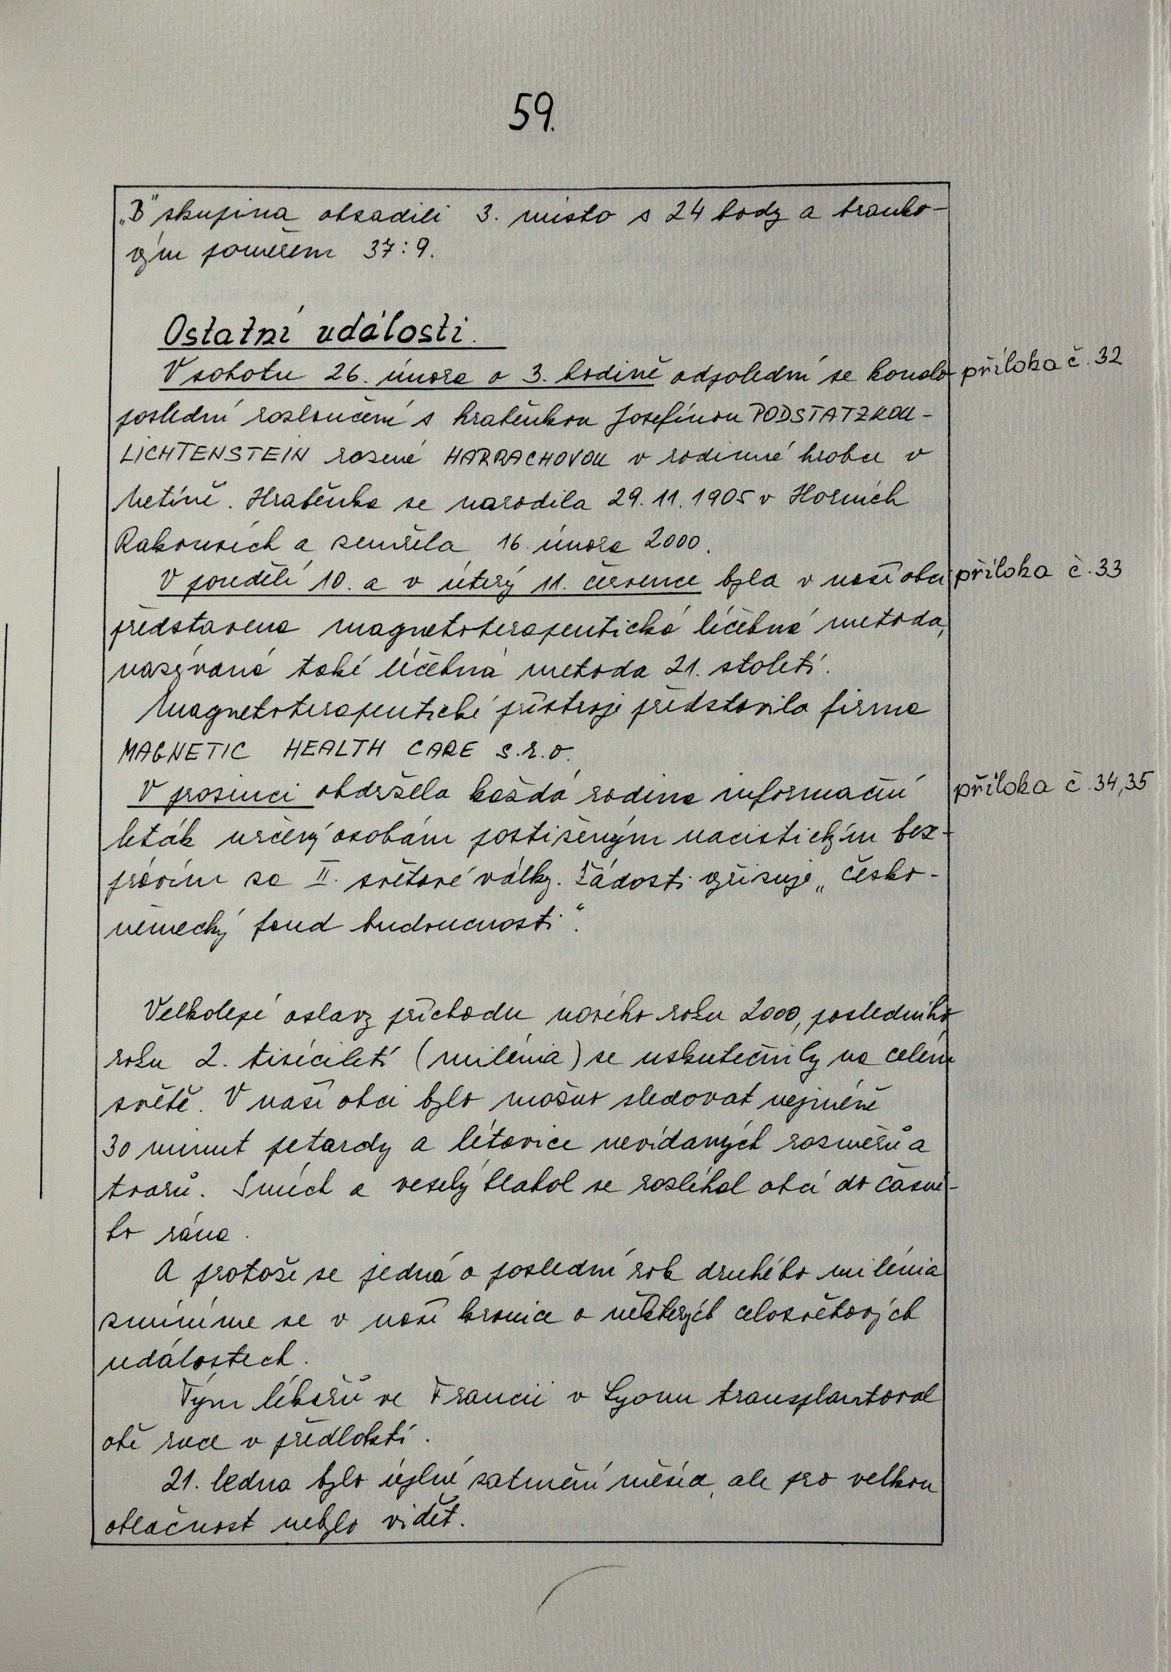 59.
„B" skupina obsadili 3. místo s 24 body a branko-
vým poměrem 37:9.
Ostatní události.
V sobotu 26. února o 3. hodině odpolední se konalo příloha č. 32
poslední rozloučení s hraběnkou Josefínou PODSTATZKOU-
LICHTENSTEIN rozené HARRACHOVOU v rodinné hrobce v
Netíně. Hraběnka se narodila 29.11.1905 v Horních
Rakousích a zemřela 16. února 2000.
V pondělí 10. a v úterý 11. července byla v naší obci příloha č. 33
představena magnetoterapeutická léčebná metoda,
nazývaná také léčebná metoda 21. století.
Magnetoterapeutické přístroje představila firma
MAGNETIC HEALTH CARE s.r.o.
V prosinci obdržela každá rodina informační příloha č. 34,35
leták určený osobám postiženým nacistickým bez-
právím za II. světové války. Žádosti vyřizuje „Česko-
německý fond budoucnosti".
Velkolepé oslavy příchodu nového roku 2000, posledního
roku 2. tisíciletí (milénia) se uskutečnily na celém
světě. V naší obci bylo možno sledovat nejméně
30 minut petardy a létavice nevídaných rozměrů a
tvarů. Smích a veselý hlahol se rozléhal obcí do časné-
ho rána.
A protože se jedná o poslední rok druhého milénia
zmíníme se v naší kronice o některých celosvětových
událostech.
Tým lékařů ve Francii v Lyonu transplantoval
obě ruce v předloktí.
21. ledna bylo úplné zatmění měsíce, ale pro velkou
oblačnost nebylo vidět.